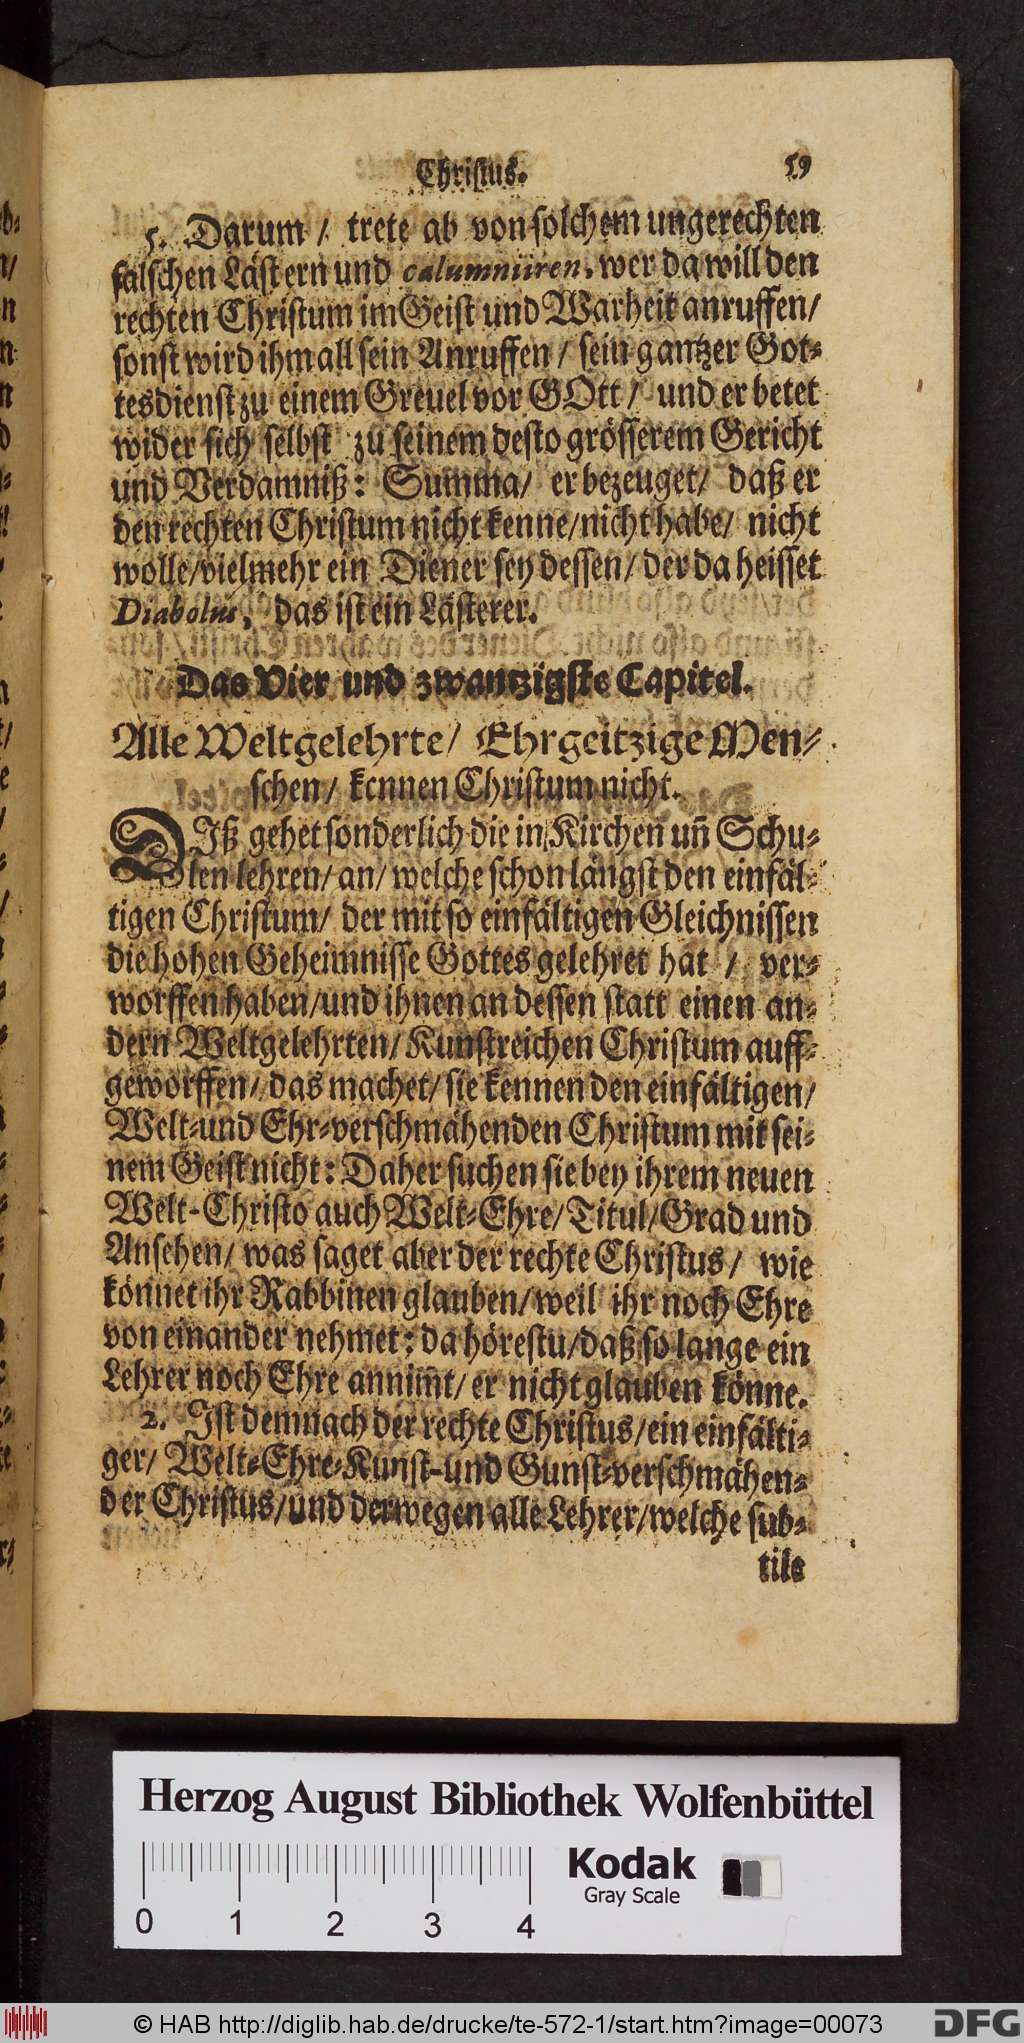 Christus. 59
5. Darum / trete ab von solchem ungerechten
falschen Lästern und calumniiren, wer da will den
rechten Christum im Geist und Warheit anruffen/
sonst wird ihm all sein Anruffen / sein gantzer Got-
tesdienst zu einem Greuel vor GOtt / und er betet
wider sich selbst zu seinem desto grösserem Gericht
und Verdamniß: Summa/ er bezeuget/ daß er
den rechten Christum nicht kenne/nicht habe/ nicht
wolle/vielmehr ein Diener sey dessen/ der da heisset
Diabolus, das ist ein Lästerer.
Das Vier und zwantzigste Capitel.
Alle Weltgelehrte/ Ehrgeitzige Men-
schen/ kennen Christum nicht.
DIß gehet sonderlich die in Kirchen uñ Schu-
len lehren/ an/ welche schon längst den einfäl-
tigen Christum/ der mit so einfältigen Gleichnissen
die hohen Geheimnisse Gottes gelehret hat / ver-
worffen haben/und ihnen an dessen statt einen an-
dern Weltgelehrten/ Kunstreichen Christum auff-
geworffen/ das machet/ sie kennen den einfältigen/
Welt-und Ehr-verschmähenden Christum mit sei-
nem Geist nicht: Daher suchen sie bey ihrem neuen
Welt-Christo auch Welt-Ehre/ Titul/Grad und
Ansehen/ was saget aber der rechte Christus/ wie
könnet ihr Rabbinen glauben/weil ihr noch Ehre
von einander nehmet: da hörestu/daß so lange ein
Lehrer noch Ehre annim̃t/ er nicht glauben könne.
2. Ist demnach der rechte Christus/ein einfälti-
ger/ Welt-Ehre-Kunst-und Gunst-verschmähen-
der Christus/und derwegen alle Lehrer/welche sub-
tile
Herzog August Bibliothek Wolfenbüttel
0 1 2 3 4
Kodak
Gray Scale
© HAB http://diglib.hab.de/drucke/te-572-1/start.htm?image=00073
DFG